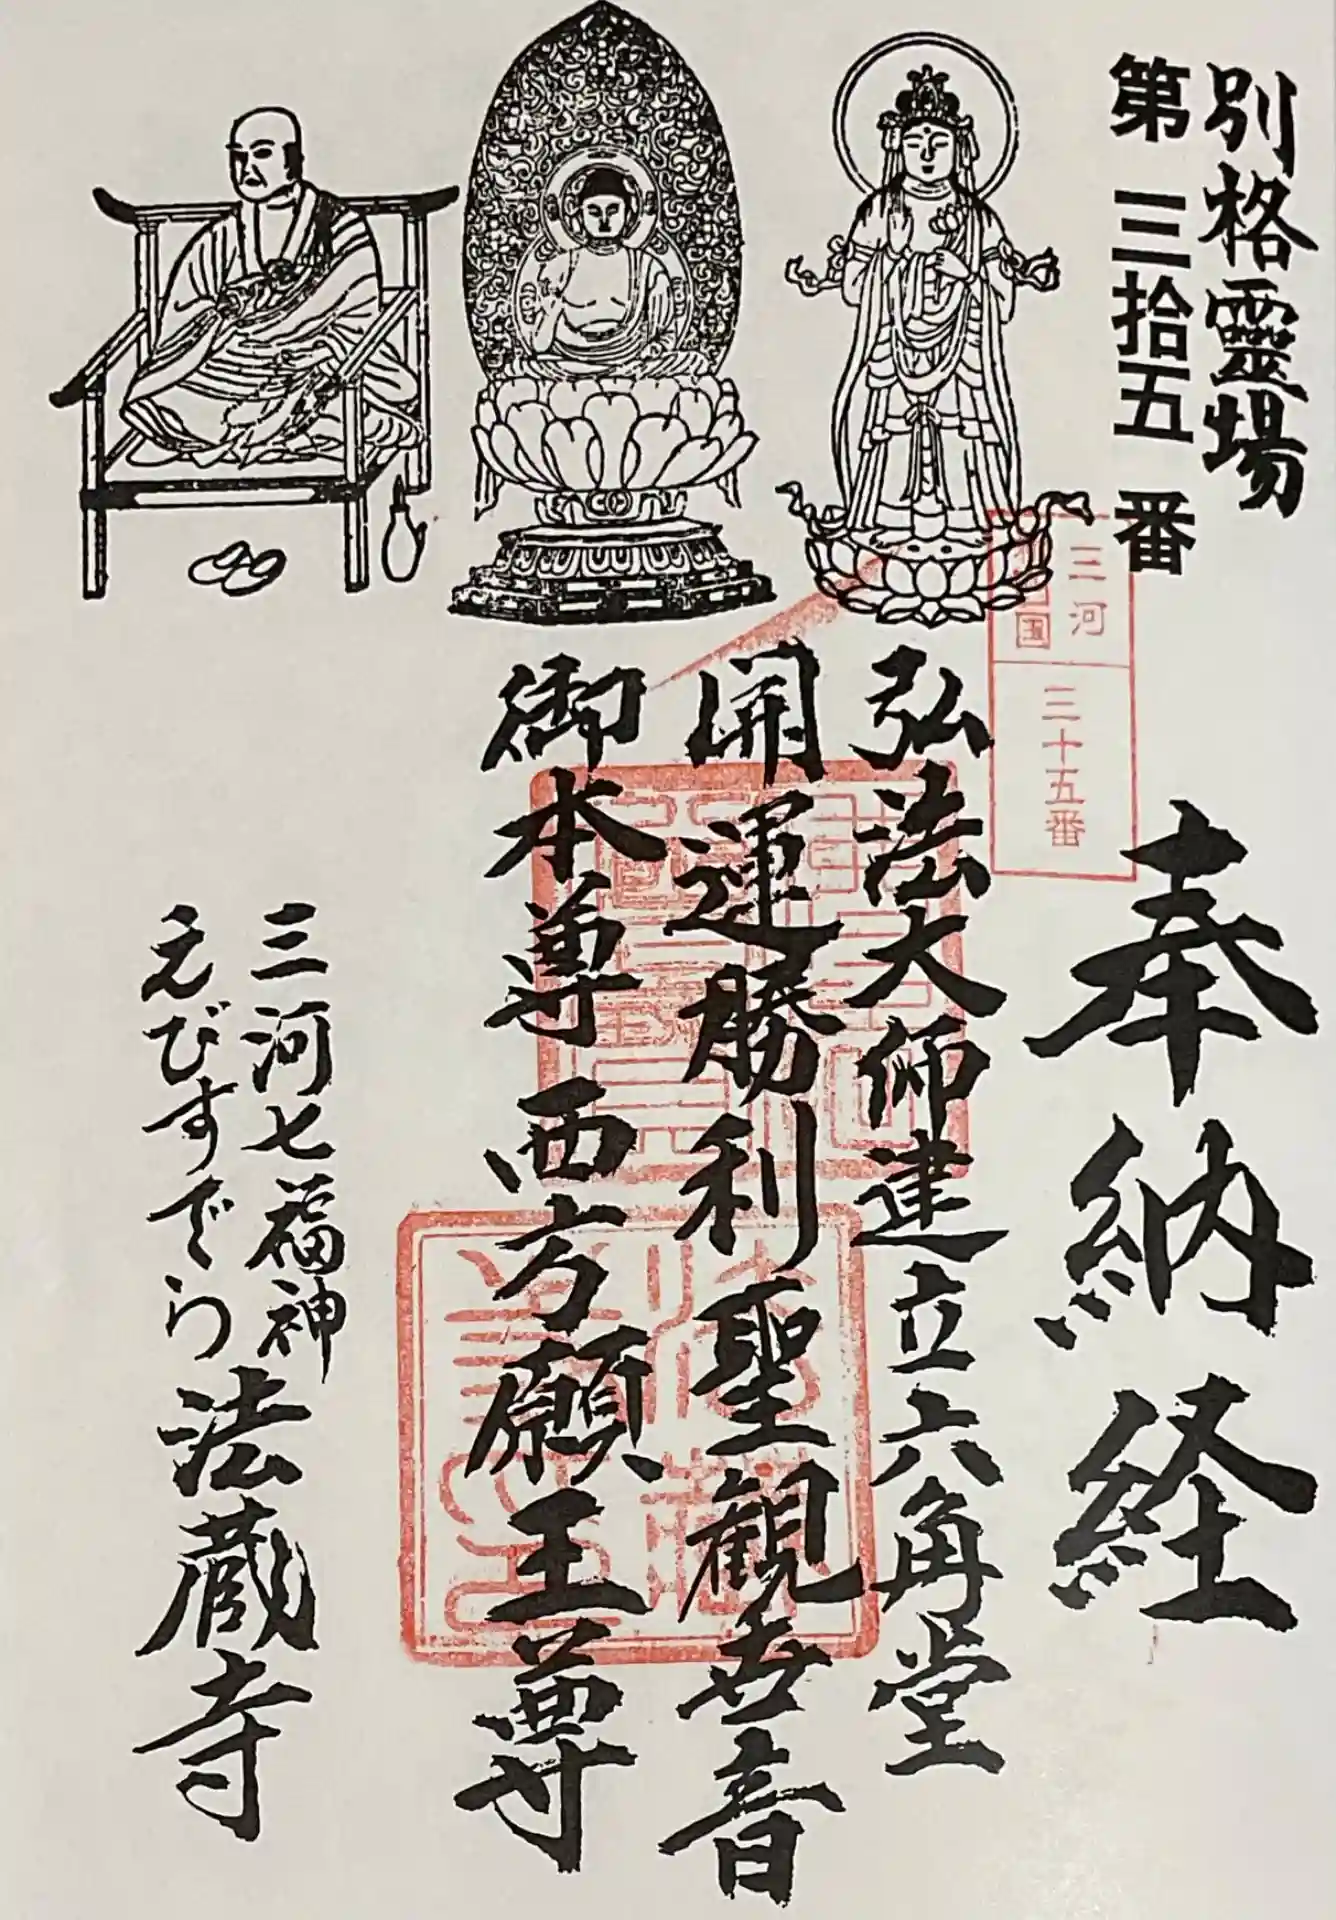 別格靈場
第三拾五番
三河
三十五番
奉納経
弘法大師建立六角堂
開運勝利聖観世音
御本尊 西方願王尊
三河七福神
えびすでら 法蔵寺